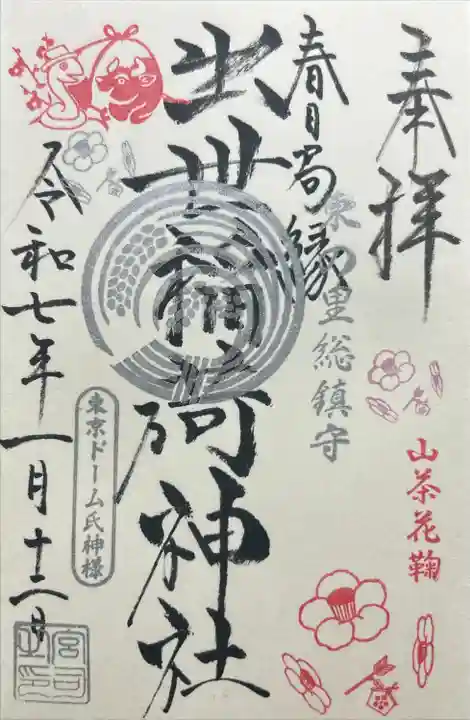 奉拝
春日局縁
東の里総鎮守
出世稲荷神社
山茶花鞠
令和七年一月十二日
東京ドーム氏神様
宮司之印